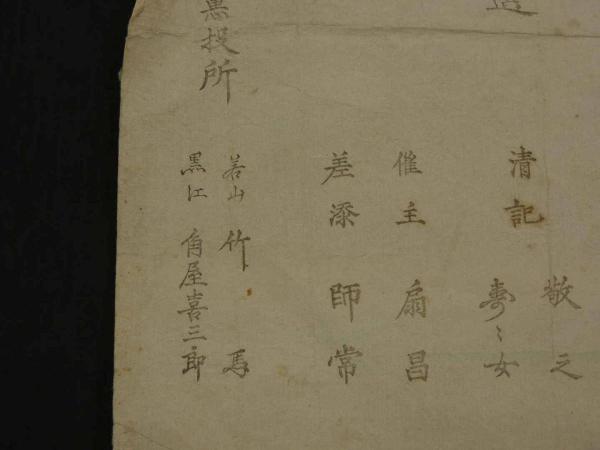 造
敬之
清記
寿〻女
催主 扇昌
差添 師常
惠投所
若山 竹馬
黒江 角屋喜三郎